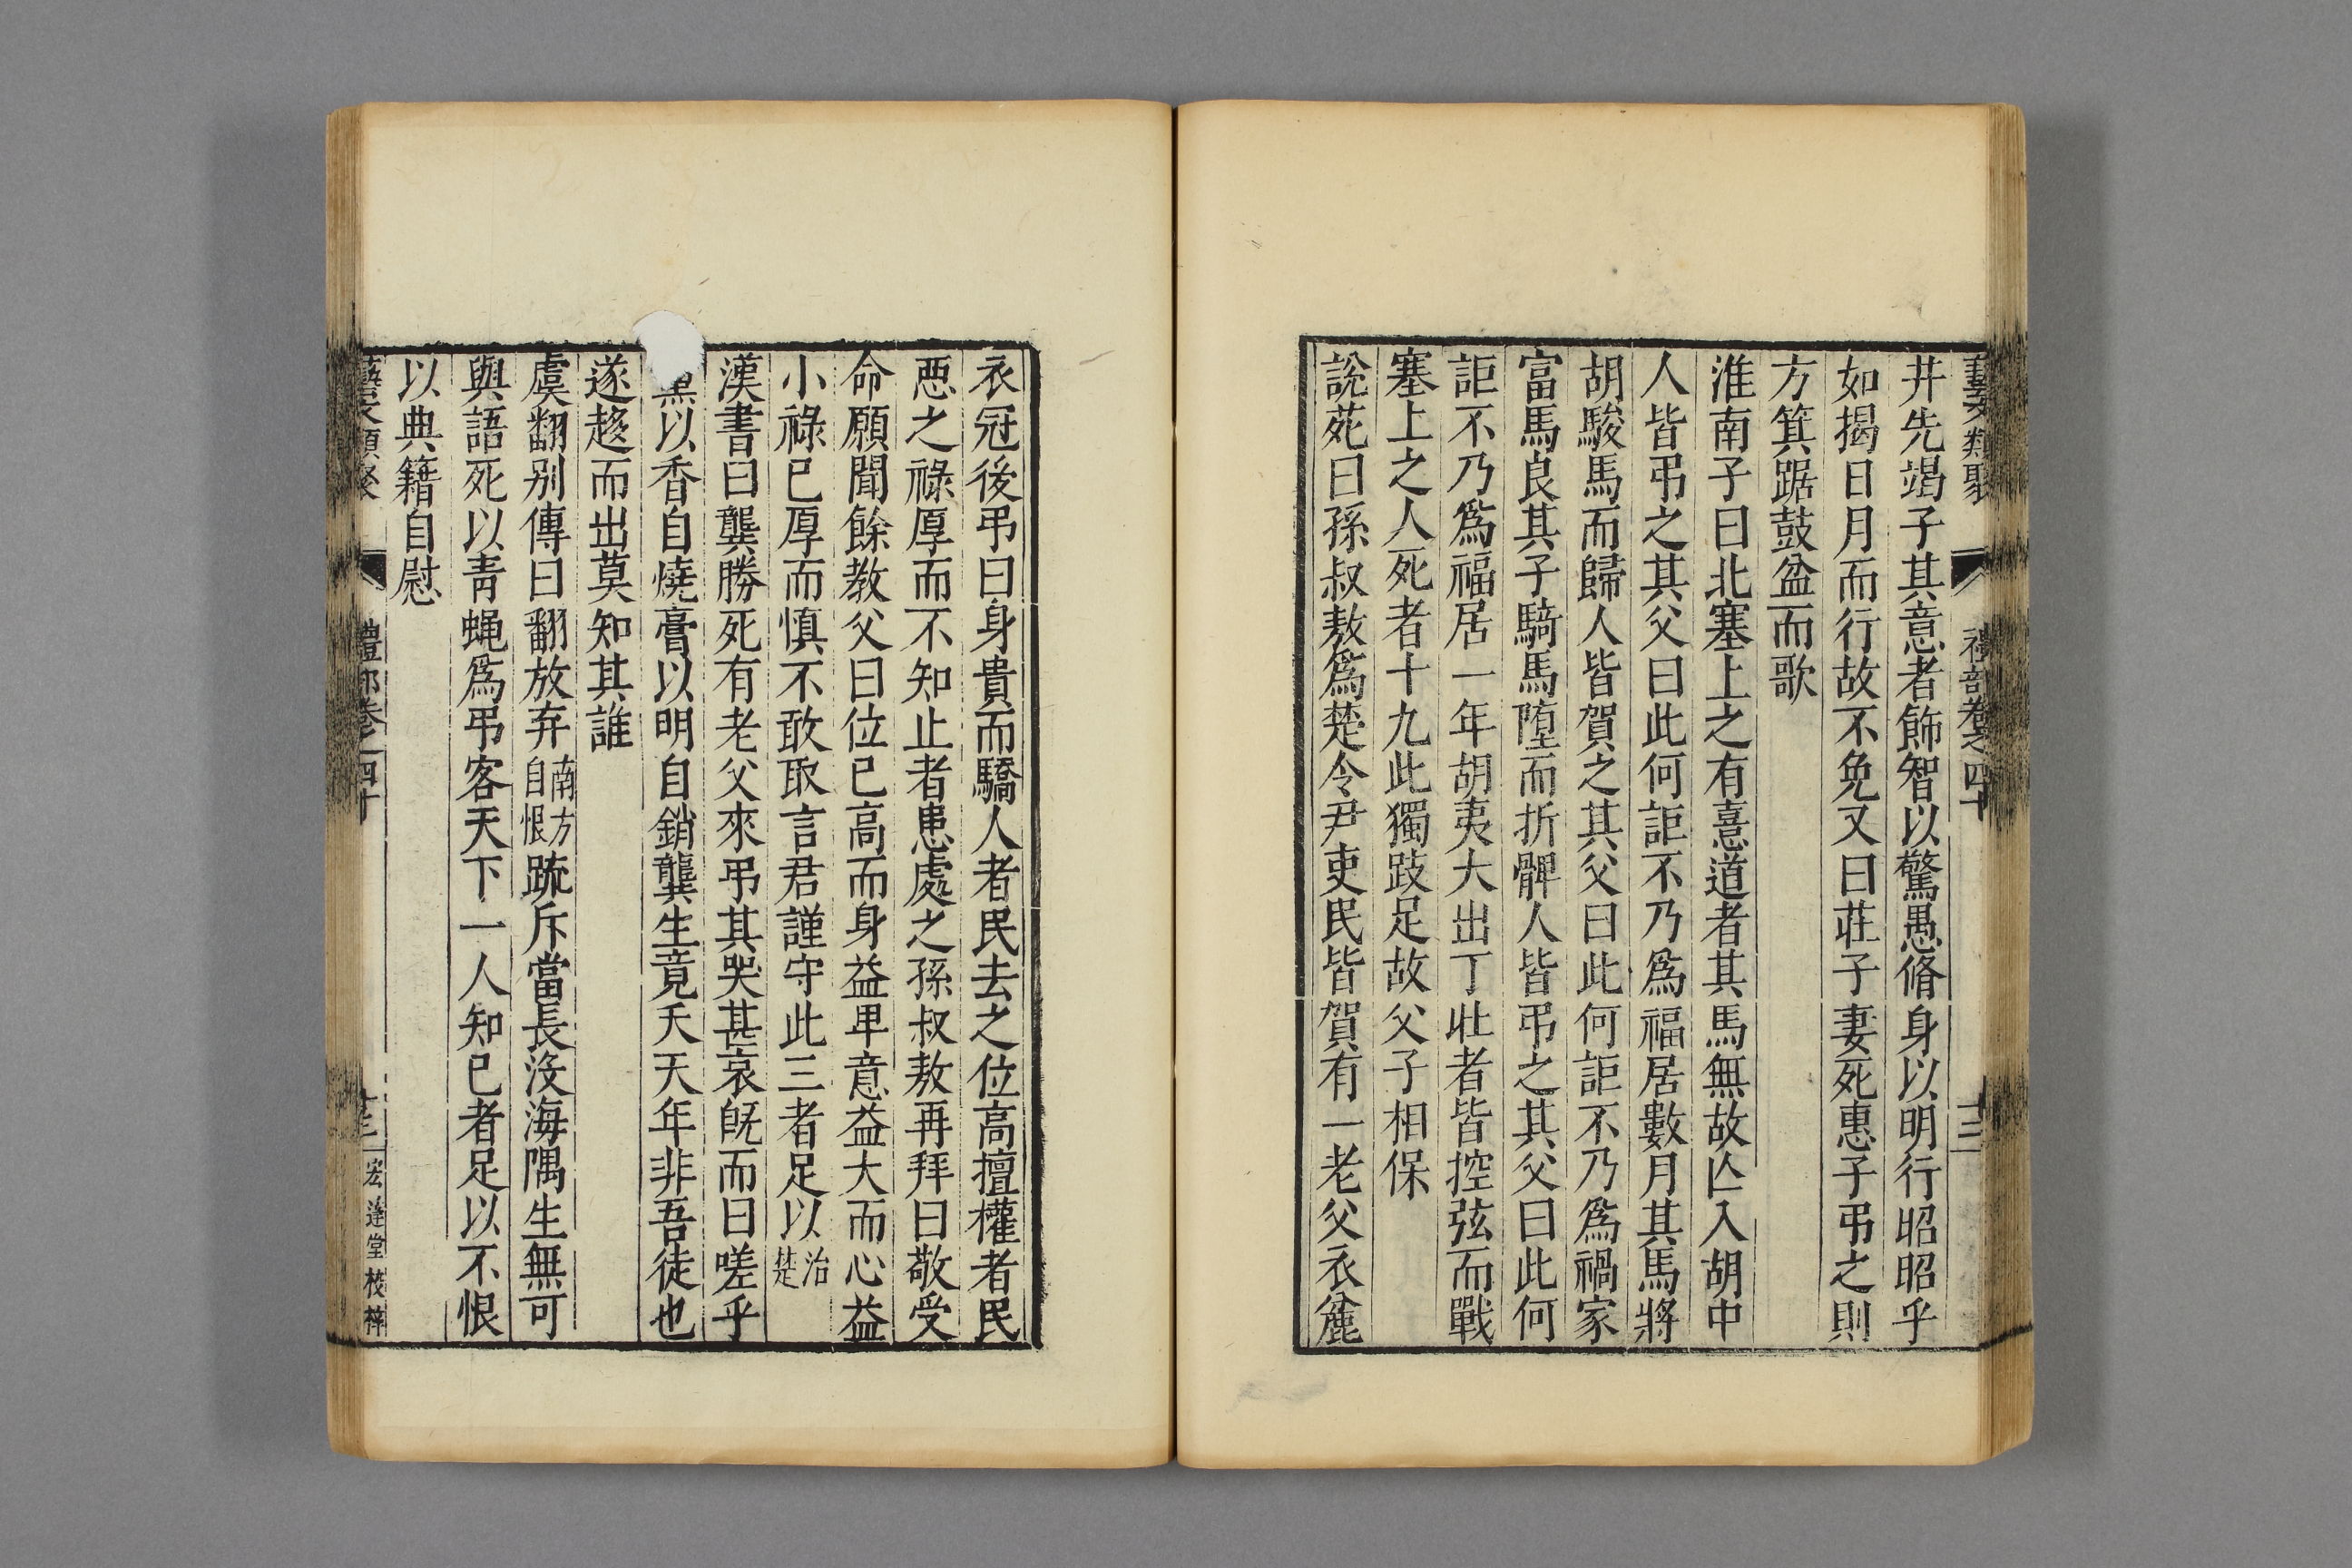 藝文類聚 禮部卷之四十 十三
井先竭子其意者飾智以驚愚脩身以明行昭昭乎
如揭日月而行故不免又曰莊子妻死惠子弔之則
方箕踞鼓盆而歌
淮南子曰北塞上之有憙道者其馬無故亾入胡中
人皆弔之其父曰此何詎不乃爲福居數月其馬將
胡駿馬而歸人皆賀之其父曰此何詎不乃爲禍家
富馬良其子騎馬墮而折髀人皆弔之其父曰此何
詎不乃爲福居一年胡夷大出丁壯者皆控弦而戰
塞上之人死者十九此獨跂足故父子相保
說苑曰孫叔敖爲楚令尹吏民皆賀有一老父衣麄
衣冠後弔曰身貴而驕人者民去之位高擅權者民
惡之祿厚而不知止者患處之孫叔敖再拜曰敬受
命願聞餘教父曰位已高而身益卑意益大而心益
小祿已厚而慎不敢取言君謹守此三者足以治楚
漢書曰龔勝死有老父來弔其哭甚哀旣而曰嗟乎
薰以香自燒膏以明自銷龔生竟夭天年非吾徒也
遂趍而出莫知其誰
虞翻別傳曰翻放弃南方自恨疏斥當長沒海隅生無可
與語死以靑蝇爲弔客天下一人知己者足以不恨
以典籍自慰
藝文類聚 禮部卷之四十 十三 宏達堂校梓